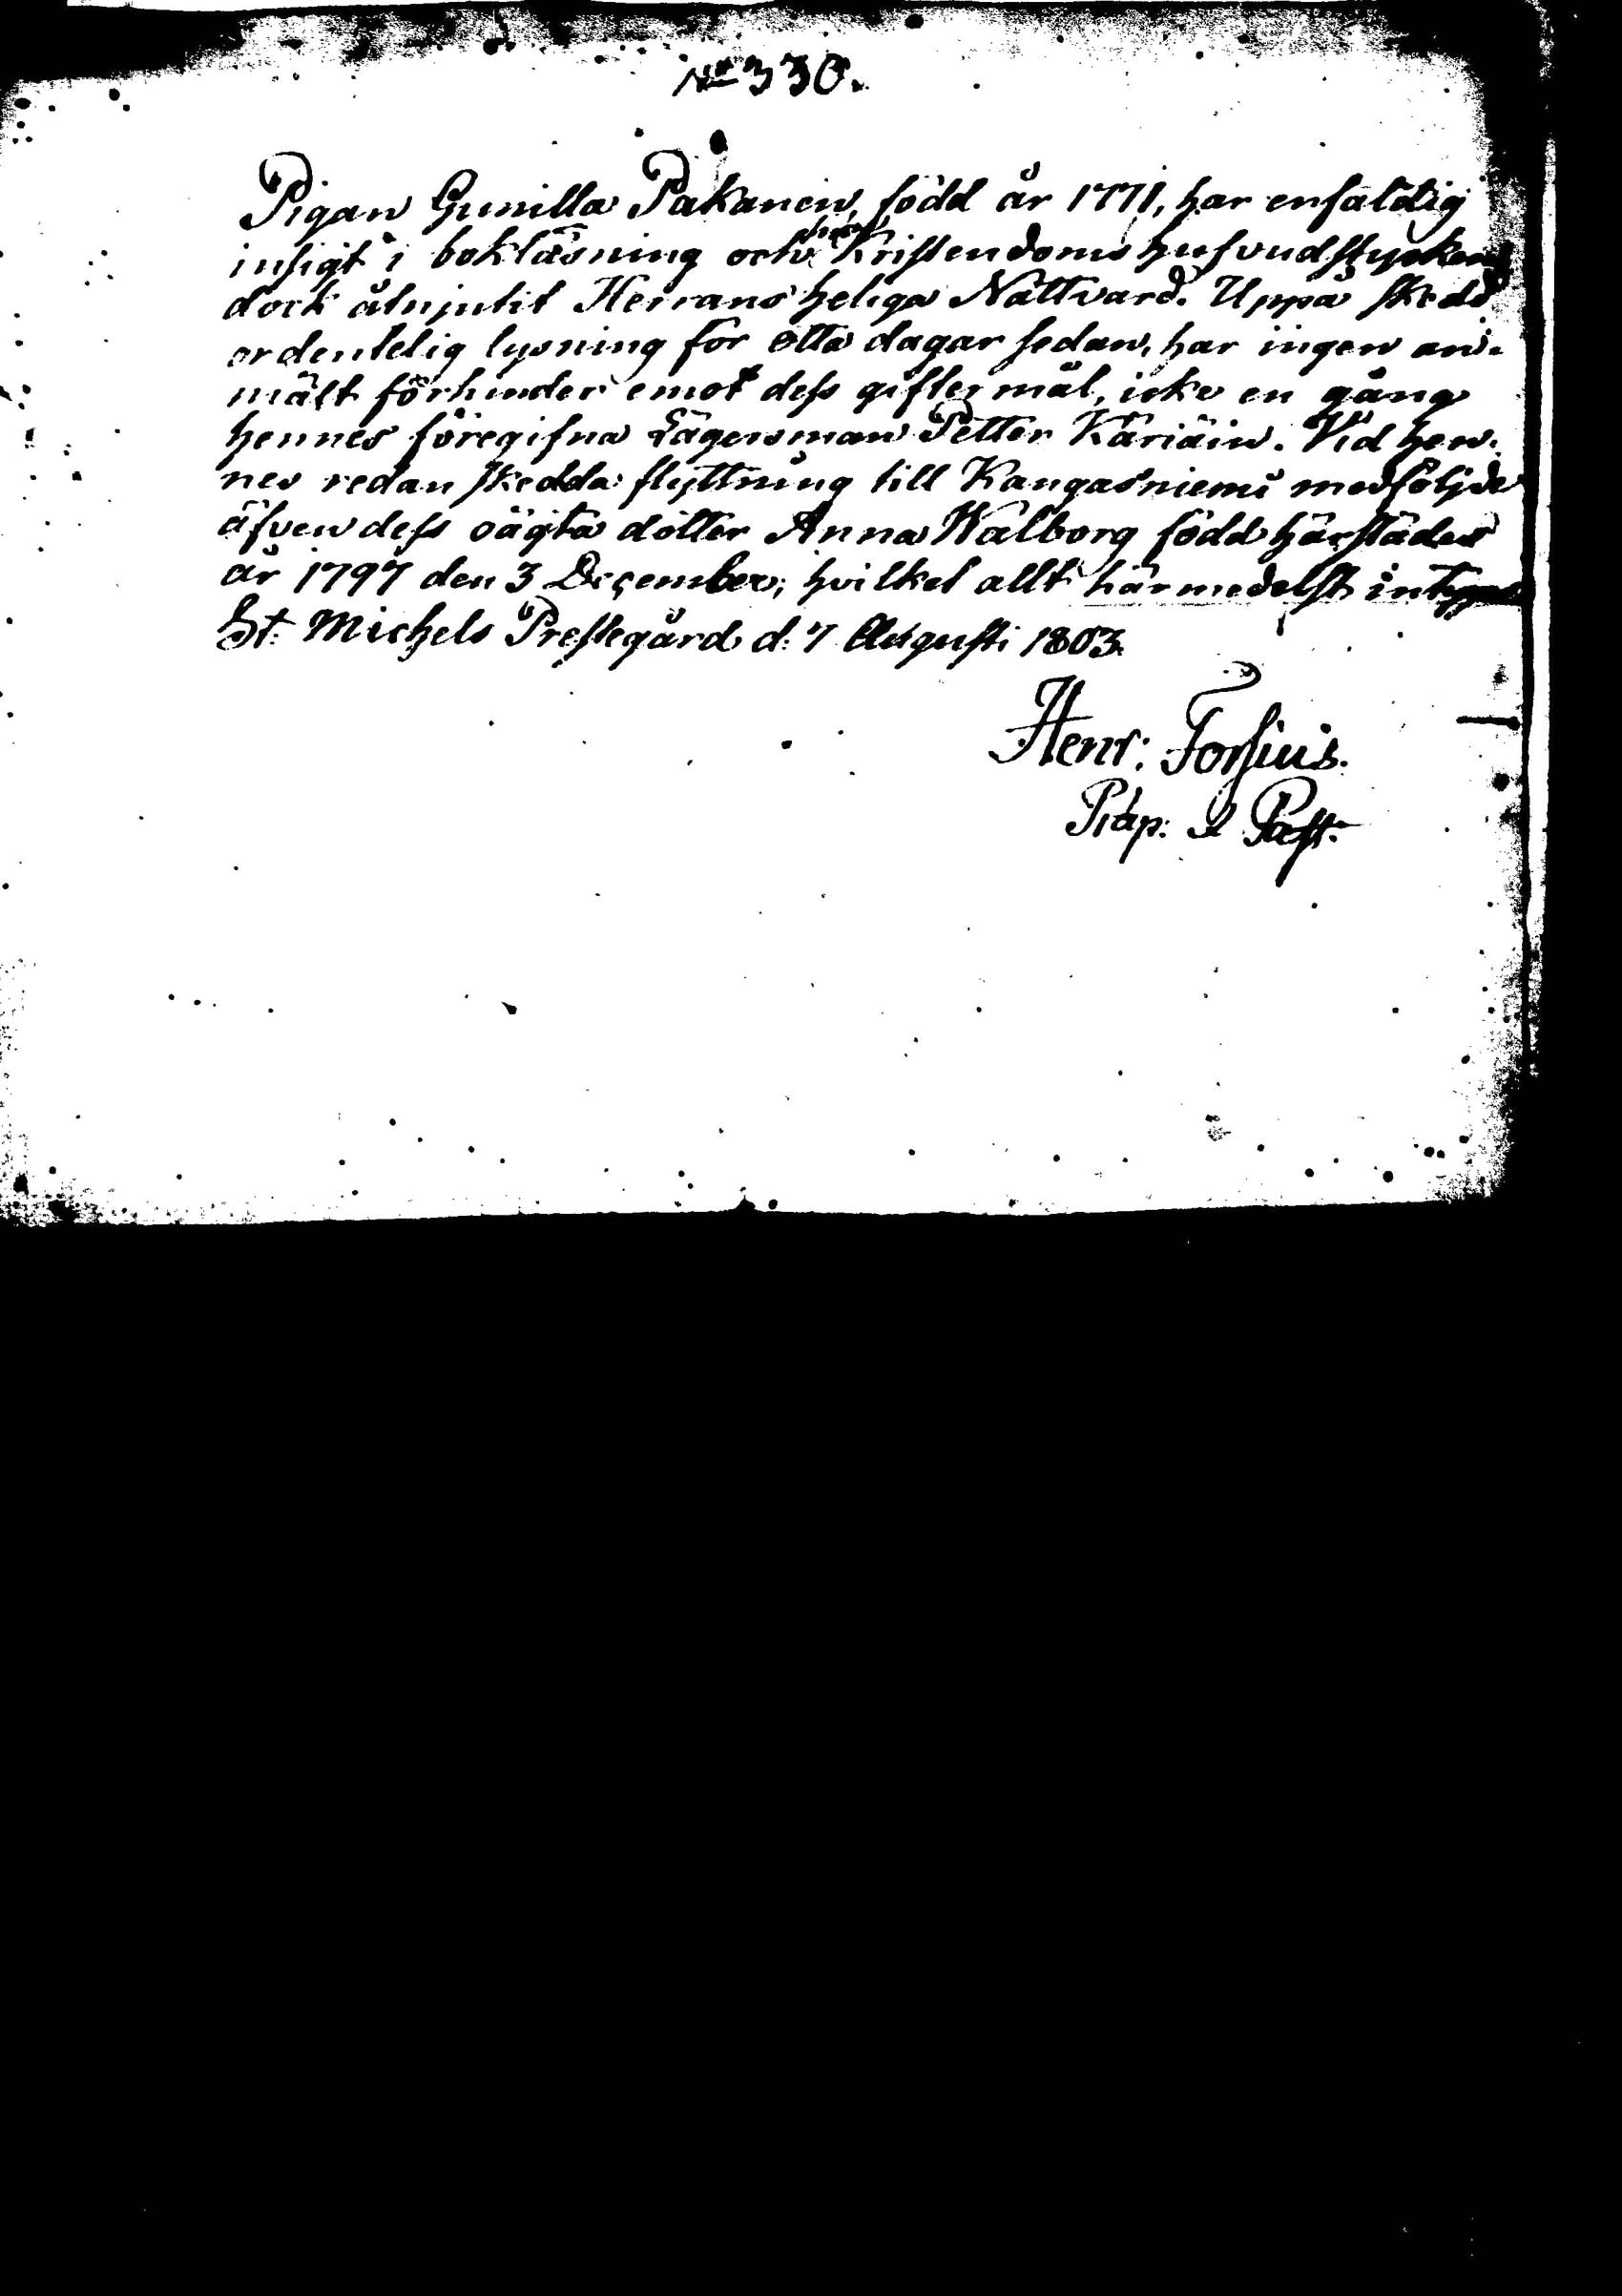 No 330.
Pigan Gunilla Pakanen, född år 1771, har enfaldig
insigt i bokläsning och Kristendoms hufvudstycken
dock åtnjutit Herrans heliga Nattvard. Uppå skedd
ordentelig lysning för otta dagar sedan, har ingen an-
mält förhinder emot dess giftermål, icke en gång
hennes föregifna Lägersman Petter Käriäin. Vid hen-
nes redan skedda flyttning till Kangasniemi medföljde
äfven dess oägta dotter Anna Walborg född härstädes
år 1797 den 3 December; hvilket allt härmedelst intygas
St. Michels Prestegård d: 7 Augusti 1803.
Henr: Forsius.
Præp: & Past: